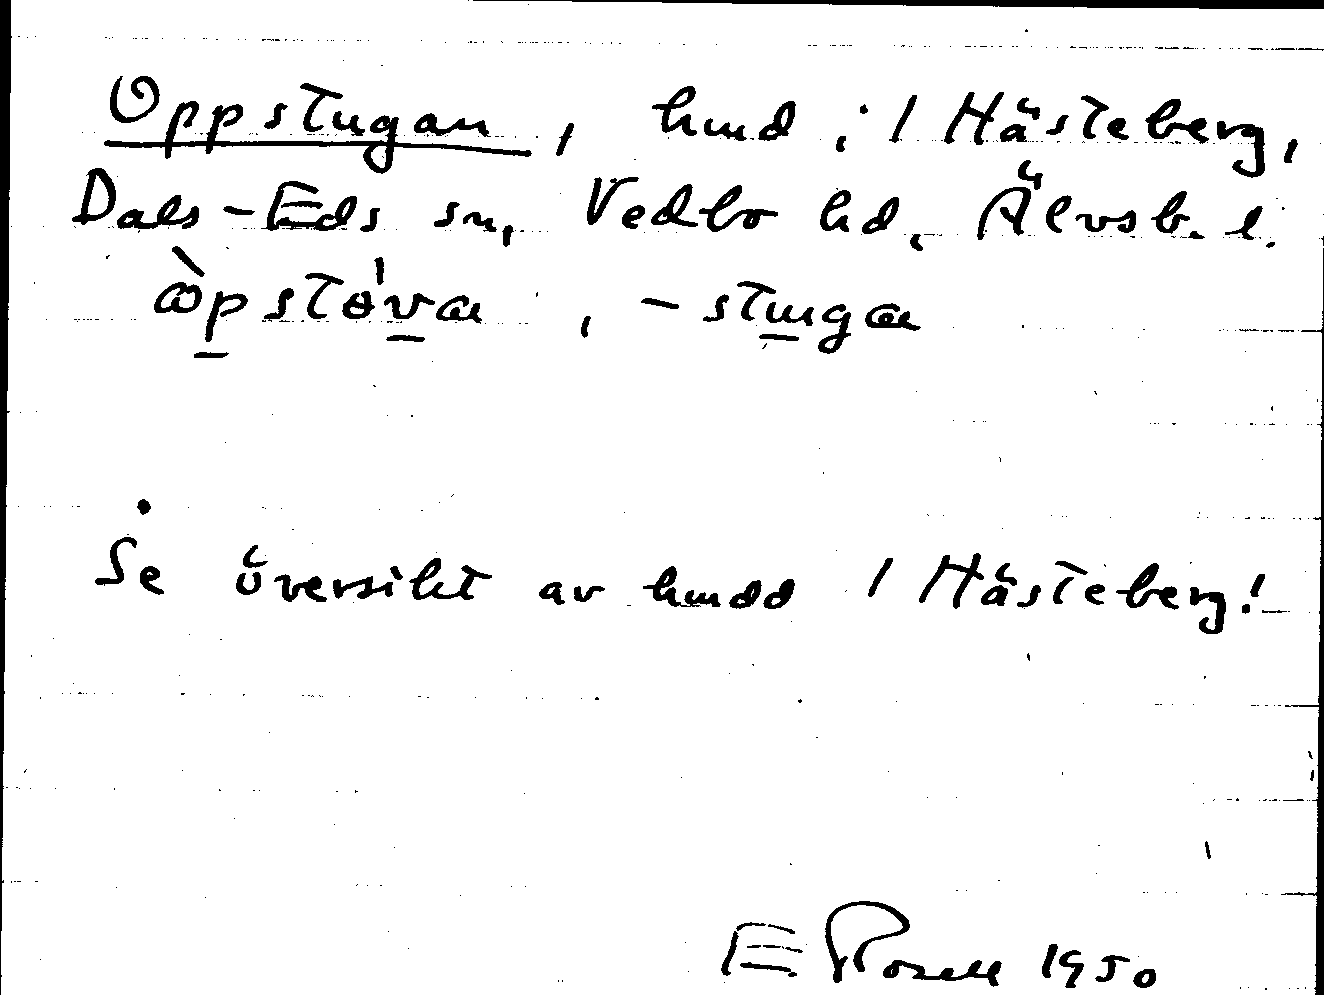 Oppstugan, hmd i 1 Hästeberg,
Dals-Eds sn, Vedbo hd, Älvsb. l.
-stugan
Se översikt av hmdd 1 Hästeberg!
E Rosell 1950